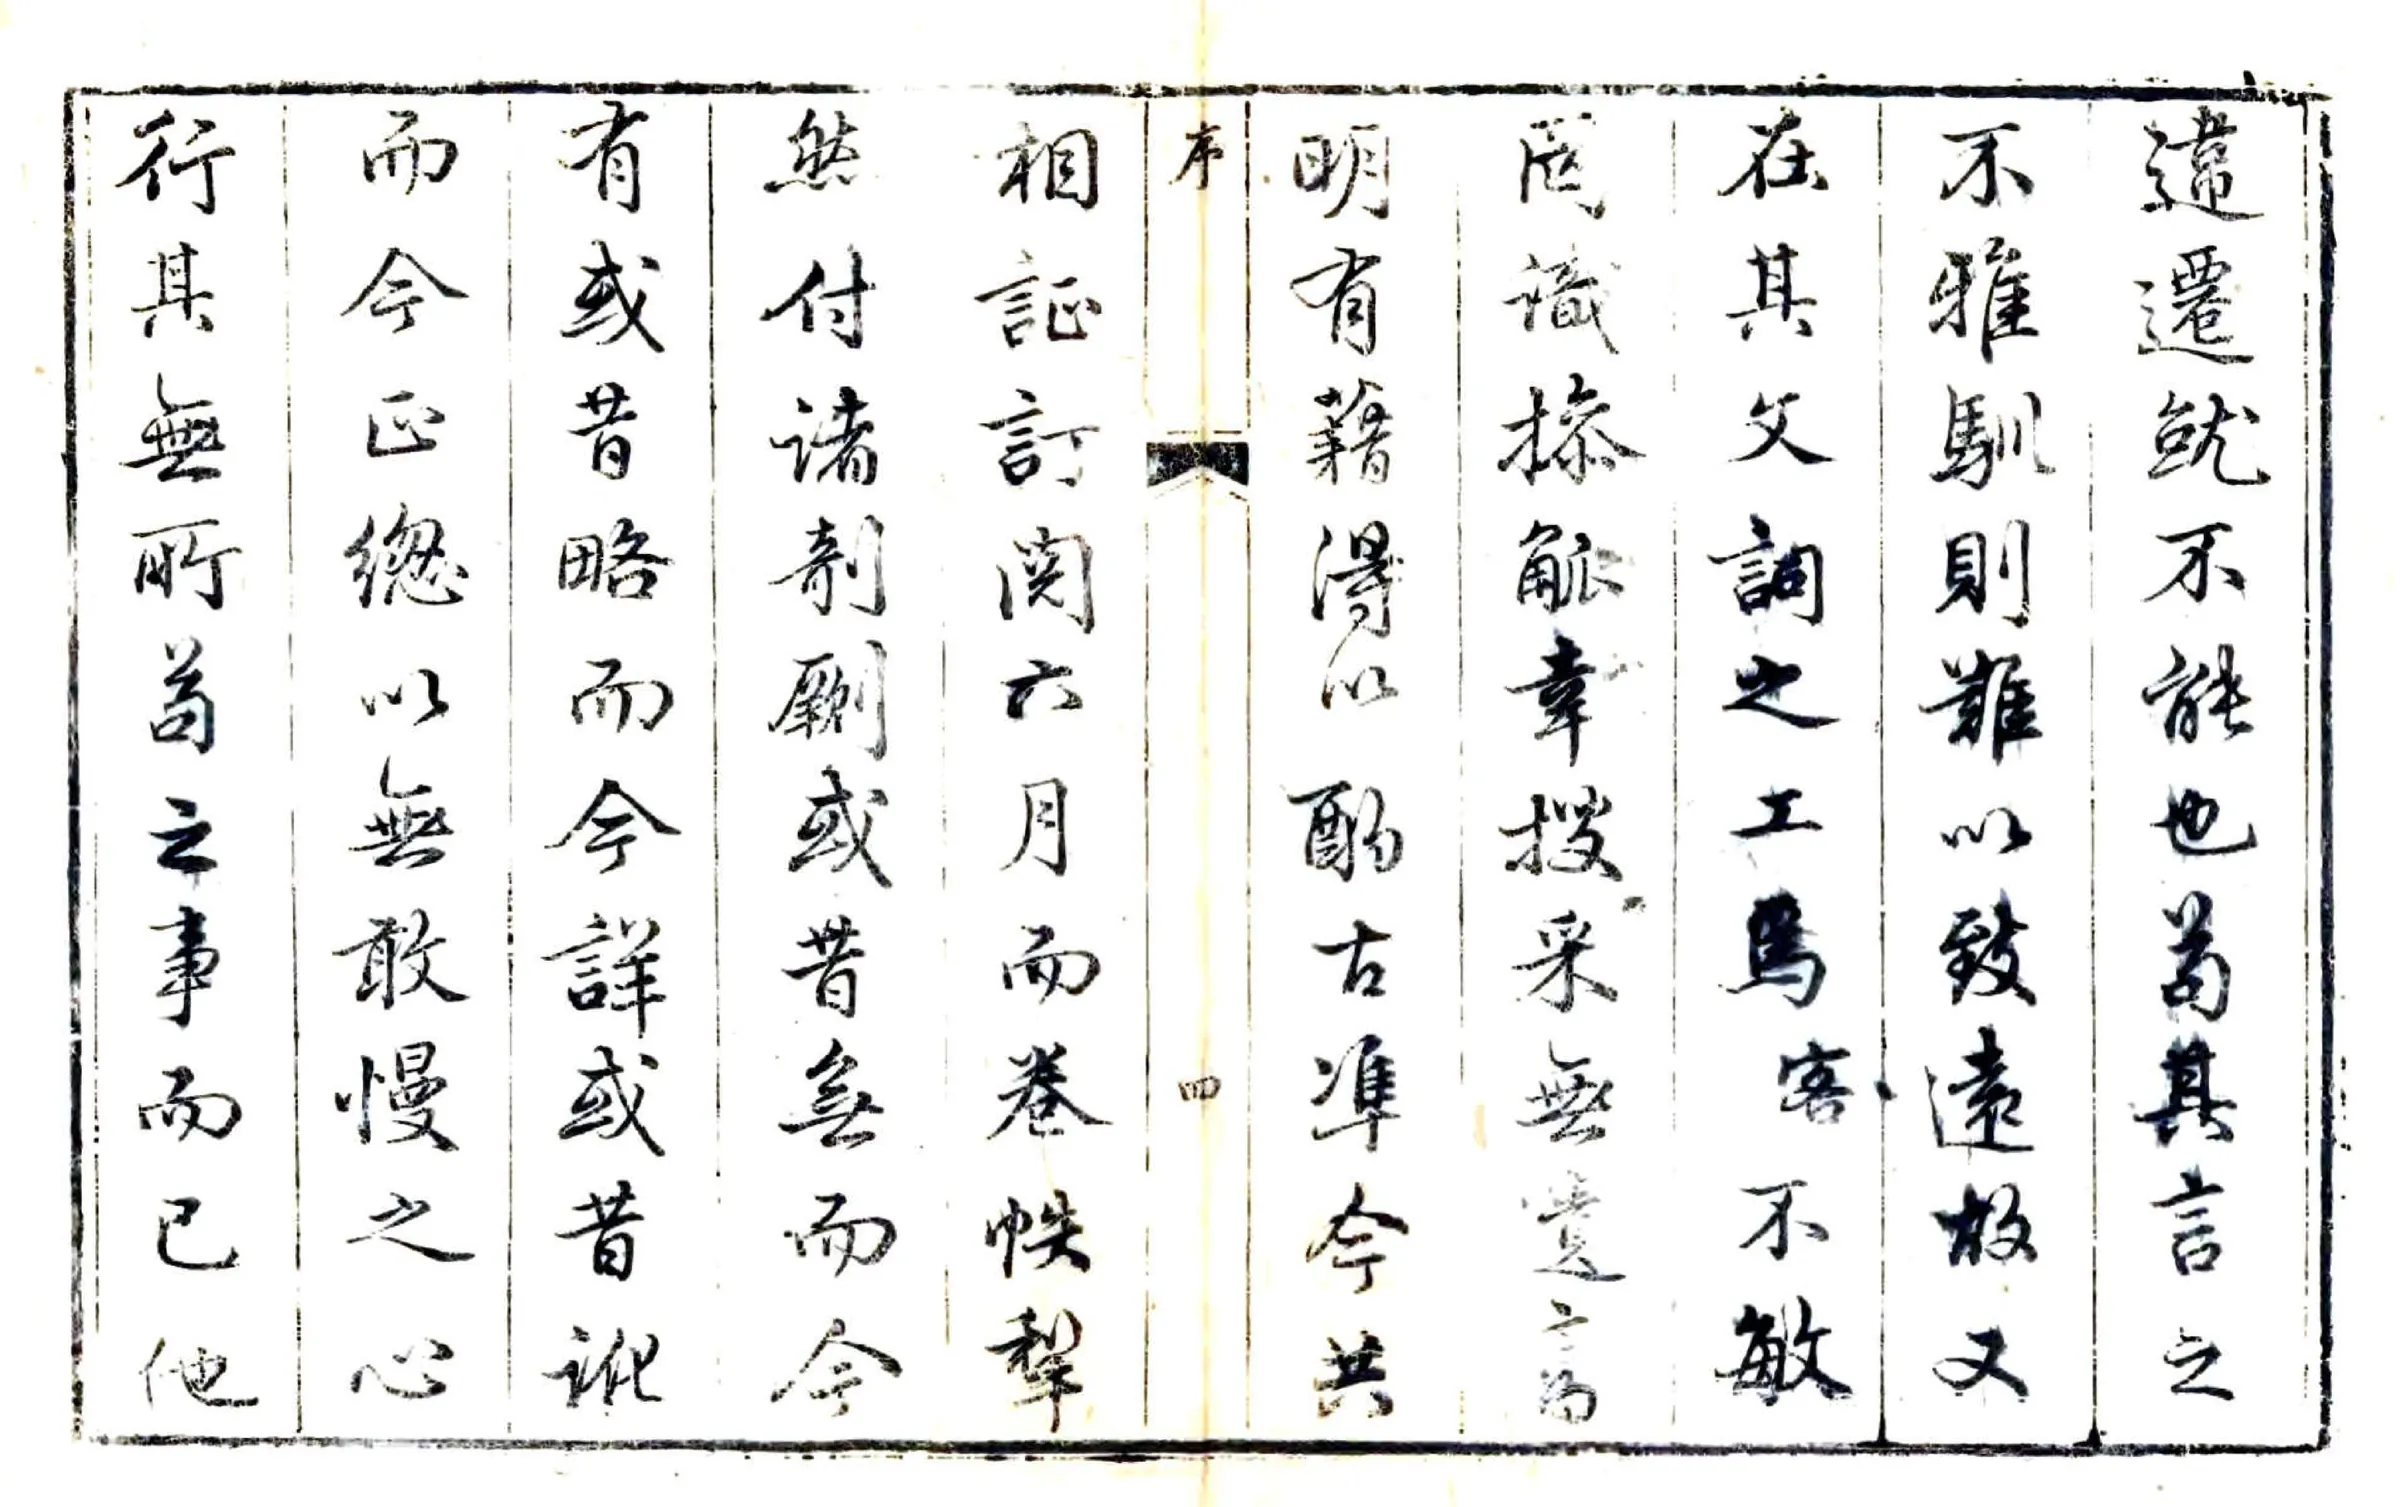 違遷就不能也苟其言之
不雅馴則難以致遠故又
在其文詞之工焉客不敏
罔識操觚幸搜采無遺高
明有藉得以酌古準今共
序
四
相証訂閱六月而卷帙犂
然付諸剞劂或昔無而今
有或昔略而今詳或昔訛
而今正總以無敢慢之心
行其無所苟之事而已他